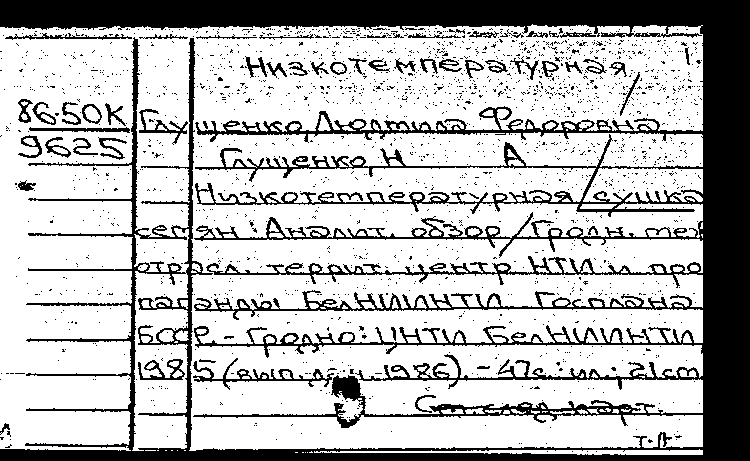 Низкотемпературная 1.
86-50К Глущенко, Людмила Федоровна,
9625 Глущенко, Н А
Низкотемпературная сушка
семян : Аналит. обзор / Гродн. меж
отрасл. террит. центр НТИ и про
паганды БелНИИНТИ Госплана
БССР. - Гродно: ЦНТИ БелНИИНТИ,
1985 (вып. дан. 1986). - 47с. : ил.; 21см
См. след. карт.
т.п-